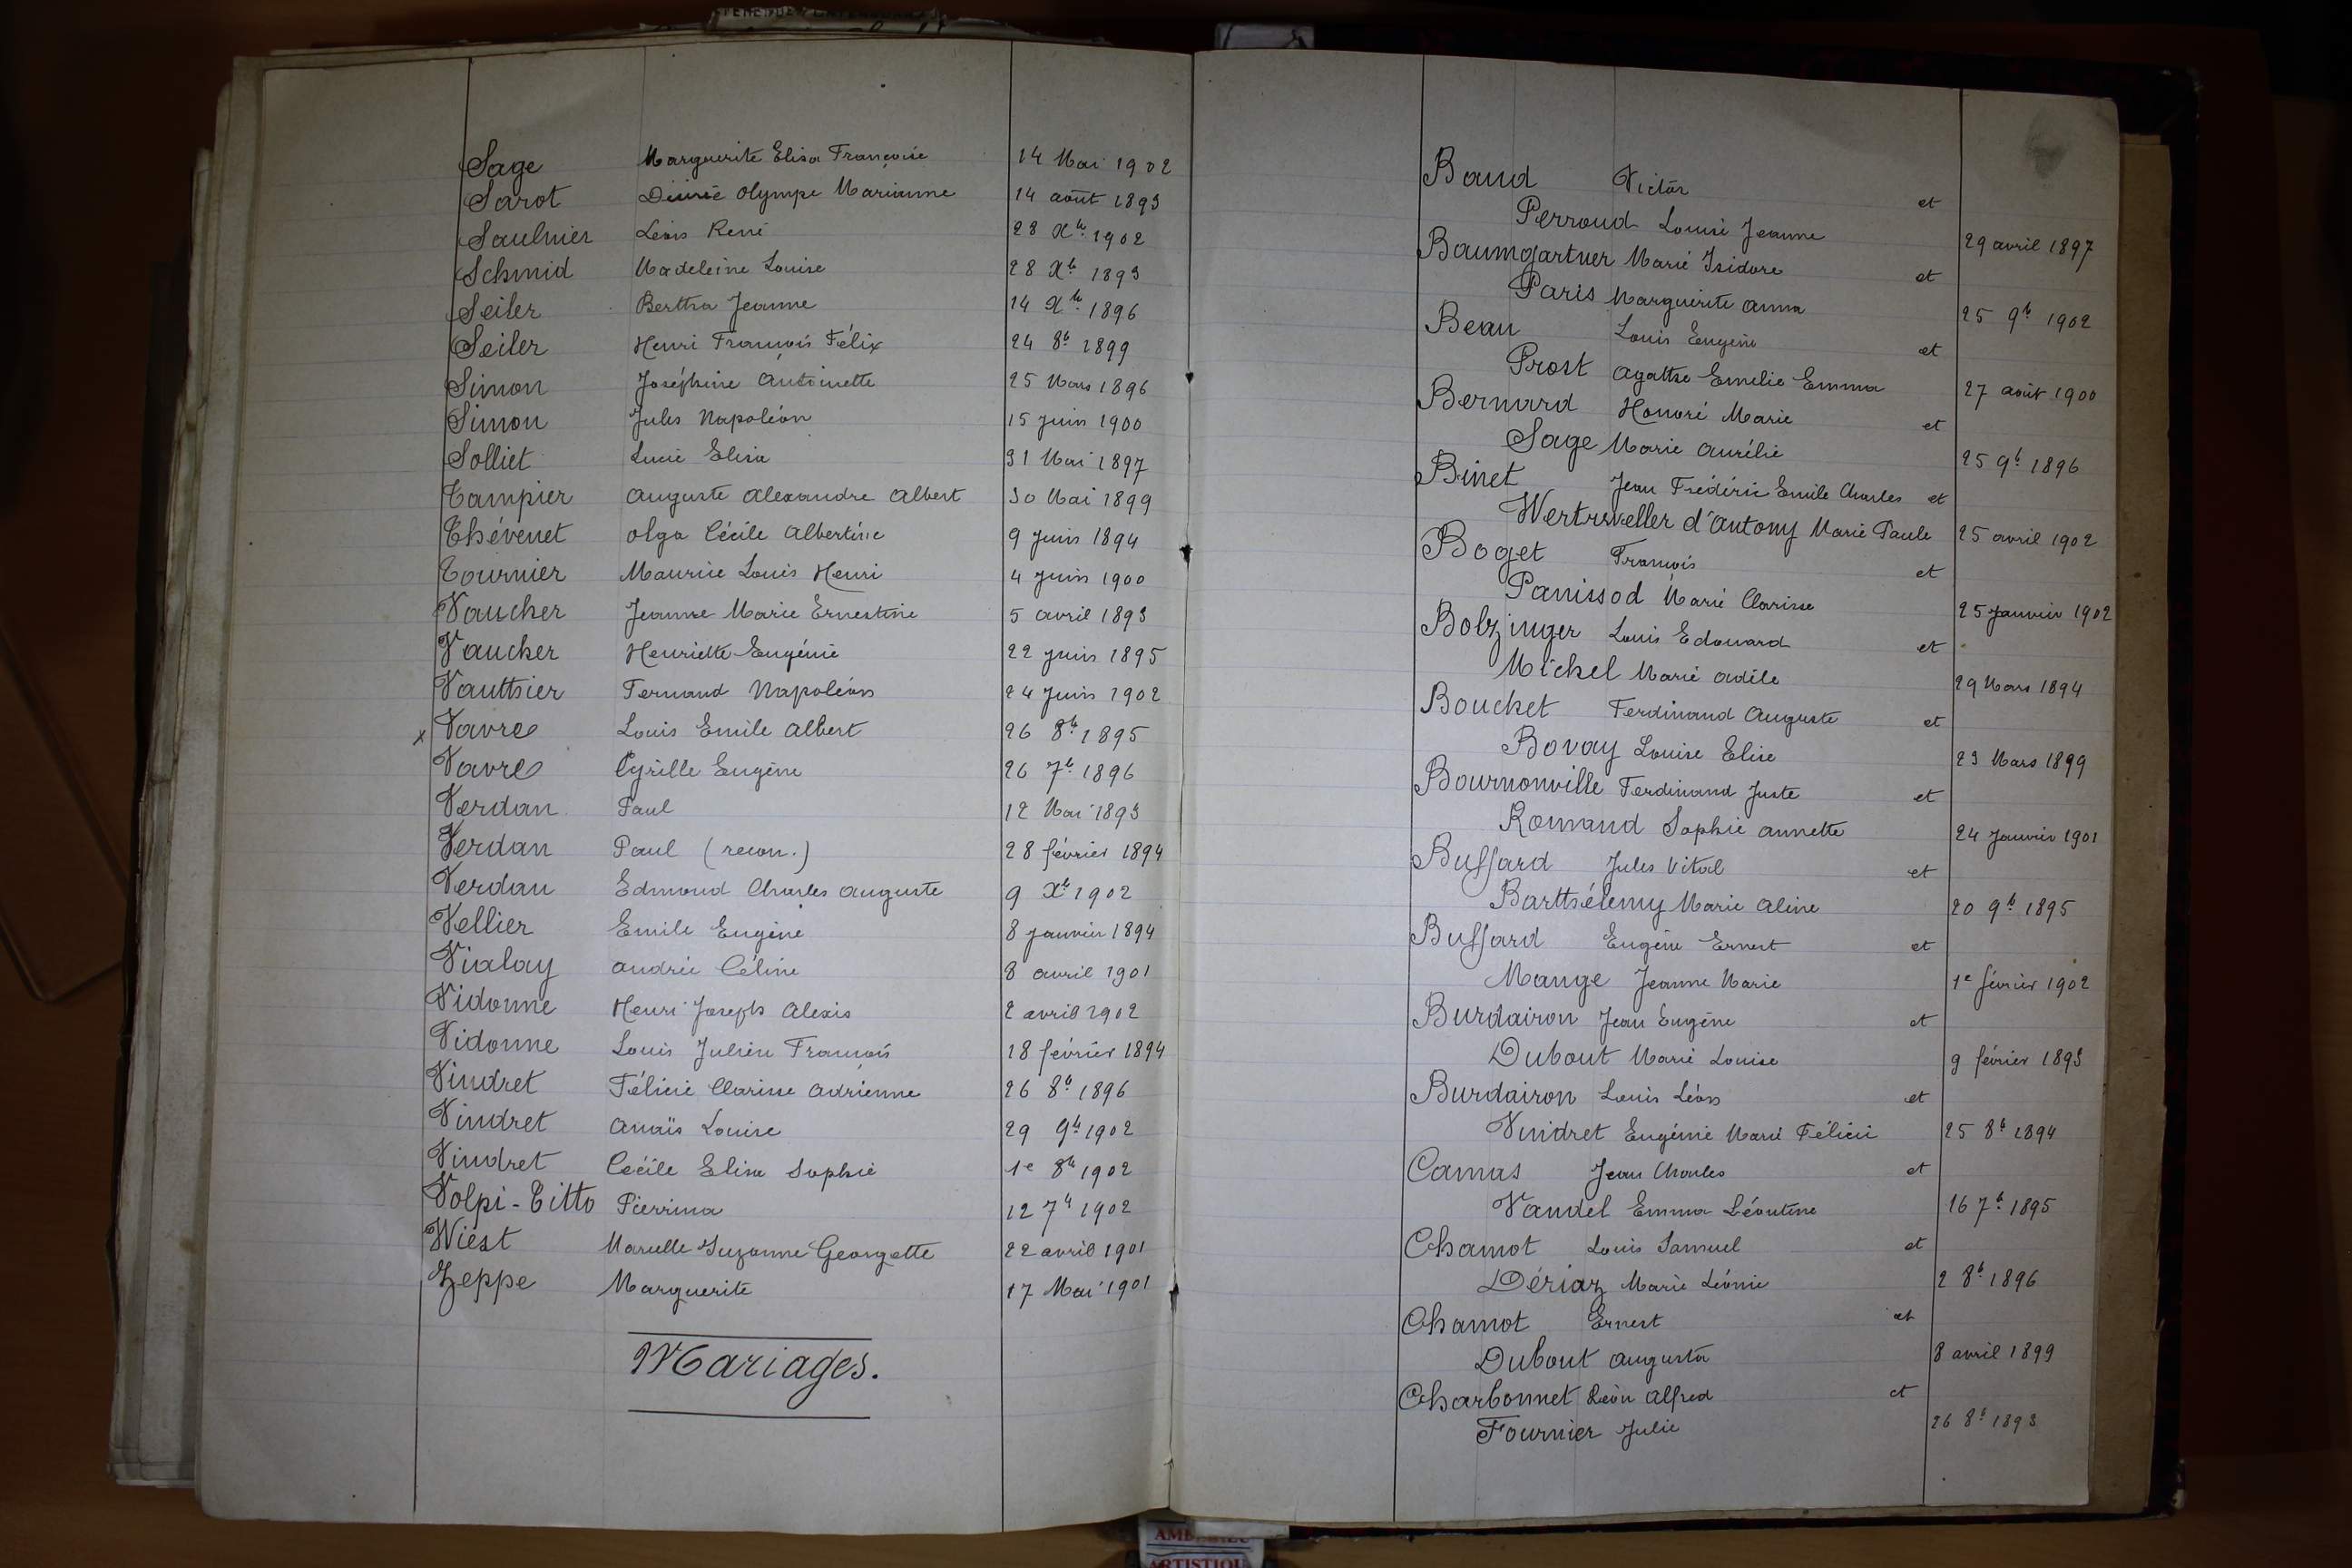 Sage Marguerite Elisa Françoise 14 Mai 1902
Sarot Désirée Olympe Marianne 14 août 1893
Saulnier Léon René 28 Xbre 1902
Schmid Madeleine Louise 28 Xb. 1893
Seiler Bertha Jeanne 14 Xbre 1896
Seiler Henri François Félix 24 8b. 1899
Simon Joséphine Antoinette 25 Mars 1896
Simon Jules Napoléon 15 juin 1900
Solliet Lucie Elisa 31 Mai 1897
Tampier Auguste Alexandre Albert 30 Mai 1899
Thévenet Olga Cécile Albertine 9 juin 1894
Tournier Maurice Louis Henri 4 juin 1900
Vaucher Jeanne Marie Ernestine 5 avril 1893
Vaucher Henriette Eugénie 22 juin 1895
Vauthier Fernand Napoléon 24 juin 1902
x Vavre Louis Emile Albert 26 8b. 1895
Vavre Cyrille Eugène 26 7b. 1896
Verdan Paul 12 Mai 1893
Verdan Paul (recon.) 28 février 1894
Verdan Edmond Charles Auguste 9 Xb. 1902
Vellier Emile Eugène 8 janvier 1894
Vialay Andrée Céline 8 avril 1901
Vidonne Henri Joseph Alexis 2 avril 1902
Vidonne Louis Julien François 18 février 1894
Vindret Félicie Clarisse Adrienne 26 8b. 1896
Vindret Anaïs Louise 29 9b. 1902
Vindret Cécile Elisa Sophie 1e 8b. 1902
Volpi-Titto Pierrina 12 7b 1902
Wiest Marcelle Suzanne Georgette 22 avril 1901
Zeppe Marguerite 17 Mai 1901
Mariages.
Baud Victor et
Perroud Louise Jeanne 29 avril 1897
Baumgartner Marie Isidore et
Paris Marguerite Anna 25 9b. 1902
Beau Louis Eugène et
Prost Agathe Emelie Emma 27 août 1900
Bernard Honoré Marie et
Sage Marie Aurélie 25 9b. 1896
Binet Jean Frédéric Emile Charles et
d'Antony Marie Paule 25 avril 1902
Boget François et
Panissod Marie Clarisse 25 janvier 1902
Bolzinger Louis Edouard et
Michel Marie Adèle 29 Mars 1894
Bouchet Ferdinand Auguste et
Bovay Louise Elise 23 Mars 1899
Bournonville Ferdinand Juste et
Romand Sophie Annette 24 janvier 1901
Buffard Jules Vital et
Barthélemy Marie Aline 20 9b. 1895
Buffard Eugène Ernest et
Mange Jeanne Marie 1e février 1902
Burdairon Jean Eugène et
Dubout Marie Louise 9 février 1893
Burdairon Louis Léon et
Vindret Eugénie Marie Félicie 25 8b. 1894
Camus Jean Charles et
Vandel Emma Léontine 16 7b. 1895
Chamot Louis Samuel et
Dériaz Marie Léonie 2 8b. 1896
Chamot Ernest et
Dubout Augusta 8 avril 1899
Charbonnet Léon Alfred et
Fournier Julie 26 8b. 1893
ARTISTIQU